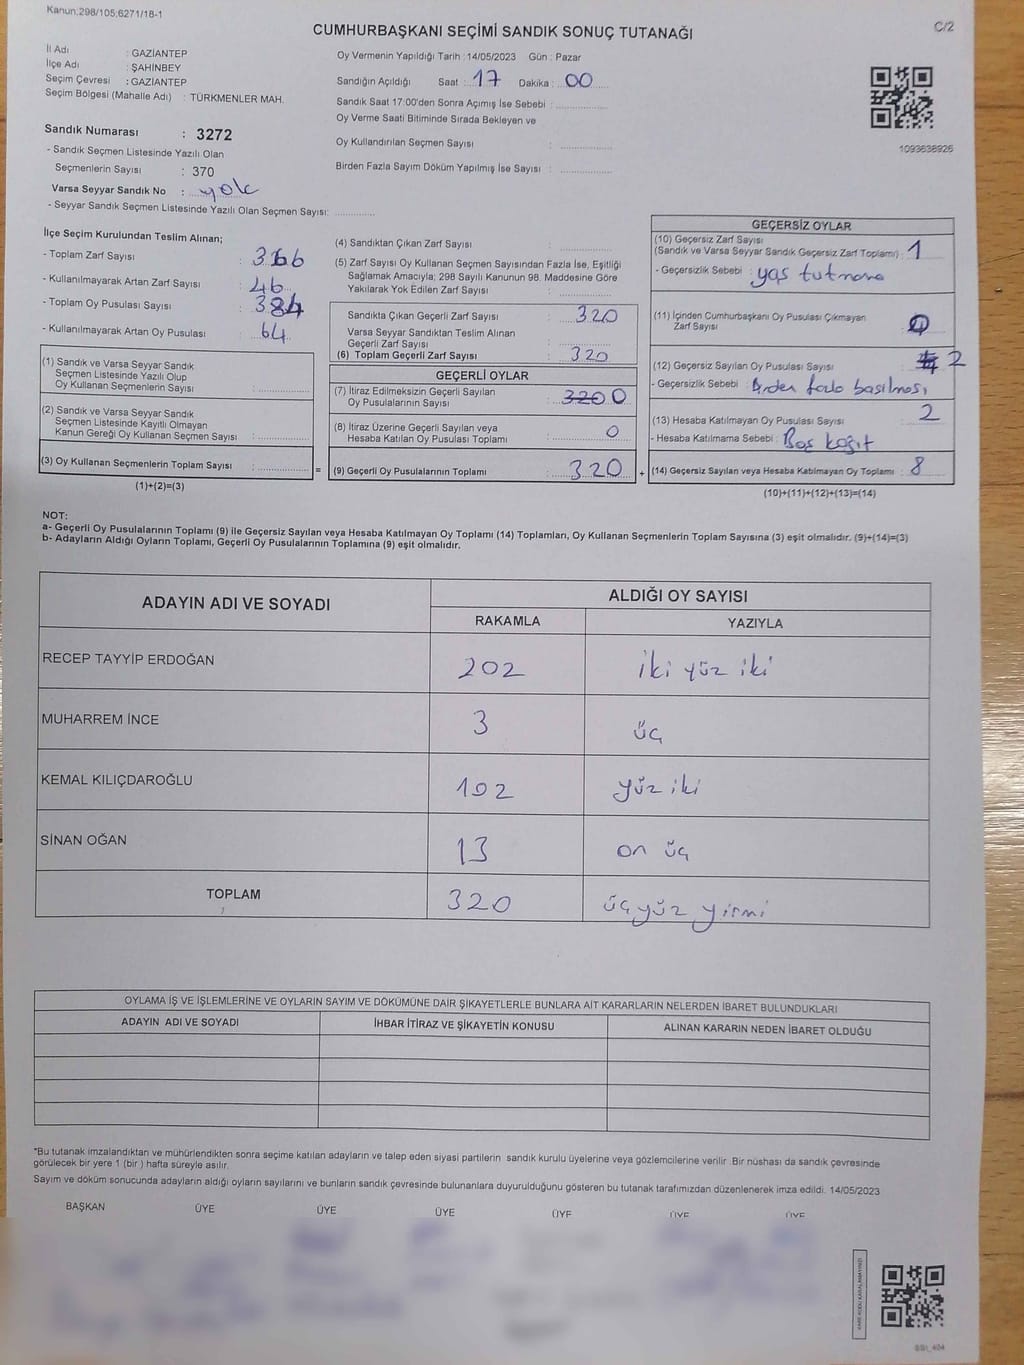 Kanun:298/105;6271/18-1
C/2
CUMHURBAŞKANI SEÇİMİ SANDIK SONUÇ TUTANAĞI
İl Adı : GAZİANTEP
İlçe Adı : ŞAHİNBEY
Seçim Çevresi : GAZİANTEP
Seçim Bölgesi (Mahalle Adı) : TÜRKMENLER MAH.
Sandık Numarası : 3272
- Sandık Seçmen Listesinde Yazılı Olan
Seçmenlerin Sayısı : 370
Varsa Seyyar Sandık No : yok
- Seyyar Sandık Seçmen Listesinde Yazılı Olan Seçmen Sayısı: ..............
Oy Vermenin Yapıldığı Tarih : 14/05/2023 Gün : Pazar
Sandığın Açıldığı Saat : 17 Dakika : 00
Sandık Saat 17:00'den Sonra Açımış İse Sebebi : ..............
Oy Verme Saati Bitiminde Sırada Bekleyen ve
Oy Kullandırılan Seçmen Sayısı : ..............
Birden Fazla Sayım Döküm Yapılmış İse Sayısı : ..............
1093638926
İlçe Seçim Kurulundan Teslim Alınan;
- Toplam Zarf Sayısı : 366
- Kullanılmayarak Artan Zarf Sayısı : 46
- Toplam Oy Pusulası Sayısı : 384
- Kullanılmayarak Artan Oy Pusulası : 64
(1) Sandık ve Varsa Seyyar Sandık
Seçmen Listesinde Yazılı Olup
Oy Kullanan Seçmenlerin Sayısı : ..............
(2) Sandık ve Varsa Seyyar Sandık
Seçmen Listesinde Kayıtlı Olmayan
Kanun Gereği Oy Kullanan Seçmen Sayısı : ..............
(3) Oy Kullanan Seçmenlerin Toplam Sayısı : .............. =
(1)+(2)=(3)
(4) Sandıktan Çıkan Zarf Sayısı : ..............
(5) Zarf Sayısı Oy Kullanan Seçmen Sayısından Fazla İse, Eşitliği
Sağlamak Amacıyla; 298 Sayılı Kanunun 98. Maddesine Göre
Yakılarak Yok Edilen Zarf Sayısı : ..............
Sandıkta Çıkan Geçerli Zarf Sayısı : 320
Varsa Seyyar Sandıktan Teslim Alınan
Geçerli Zarf Sayısı : ..............
(6) Toplam Geçerli Zarf Sayısı : 320
GEÇERLİ OYLAR
(7) İtiraz Edilmeksizin Geçerli Sayılan
Oy Pusulalarının Sayısı : 320 0
(8) İtiraz Üzerine Geçerli Sayılan veya
Hesaba Katılan Oy Pusulası Toplamı : 0
(9) Geçerli Oy Pusulalarının Toplamı : 320 +
GEÇERSİZ OYLAR
(10) Geçersiz Zarf Sayısı
(Sandık ve Varsa Seyyar Sandık Geçersiz Zarf Toplamı) : 1
- Geçersizlik Sebebi : yaş tutmama
(11) İçinden Cumhurbaşkanı Oy Pusulası Çıkmayan
Zarf Sayısı : 0
(12) Geçersiz Sayılan Oy Pusulası Sayısı : 2
- Geçersizlik Sebebi : Birden fazla basılması
(13) Hesaba Katılmayan Oy Pusulası Sayısı : 2
- Hesaba Katılmama Sebebi : Boş kağıt
(14) Geçersiz Sayılan veya Hesaba Katılmayan Oy Toplamı : 8
(10)+(11)+(12)+(13)=(14)
NOT:
a- Geçerli Oy Pusulalarının Toplamı (9) ile Geçersiz Sayılan veya Hesaba Katılmayan Oy Toplamı (14) Toplamları, Oy Kullanan Seçmenlerin Toplam Sayısına (3) eşit olmalıdır. (9)+(14)=(3)
b- Adayların Aldığı Oyların Toplamı, Geçerli Oy Pusulalarının Toplamına (9) eşit olmalıdır.
ADAYIN ADI VE SOYADI ALDIĞI OY SAYISI
RAKAMLA YAZIYLA
RECEP TAYYİP ERDOĞAN 202 iki yüz iki
MUHARREM İNCE 3 üç
KEMAL KILIÇDAROĞLU 102 yüz iki
SİNAN OĞAN 13 on üç
TOPLAM 320 üçyüz yirmi
OYLAMA İŞ VE İŞLEMLERİNE VE OYLARIN SAYIM VE DÖKÜMÜNE DAİR ŞİKAYETLERLE BUNLARA AİT KARARLARIN NELERDEN İBARET BULUNDUKLARI
ADAYIN ADI VE SOYADI İHBAR İTİRAZ VE ŞİKAYETİN KONUSU ALINAN KARARIN NEDEN İBARET OLDUĞU
"Bu tutanak imzalandıktan ve mühürlendikten sonra seçime katılan adayların ve talep eden siyasi partilerin sandık kurulu üyelerine veya gözlemcilerine verilir. Bir nüshası da sandık çevresinde
görülecek bir yere 1 (bir ) hafta süreyle asılır.
Sayım ve döküm sonucunda adayların aldığı oyların sayılarını ve bunların sandık çevresinde bulunanlara duyurulduğunu gösteren bu tutanak tarafımızdan düzenlenerek imza edildi. 14/05/2023
BAŞKAN ÜYE ÜYE ÜYE ÜYE ÜYE ÜYE
KARE KODU KARALAMAYINIZ!